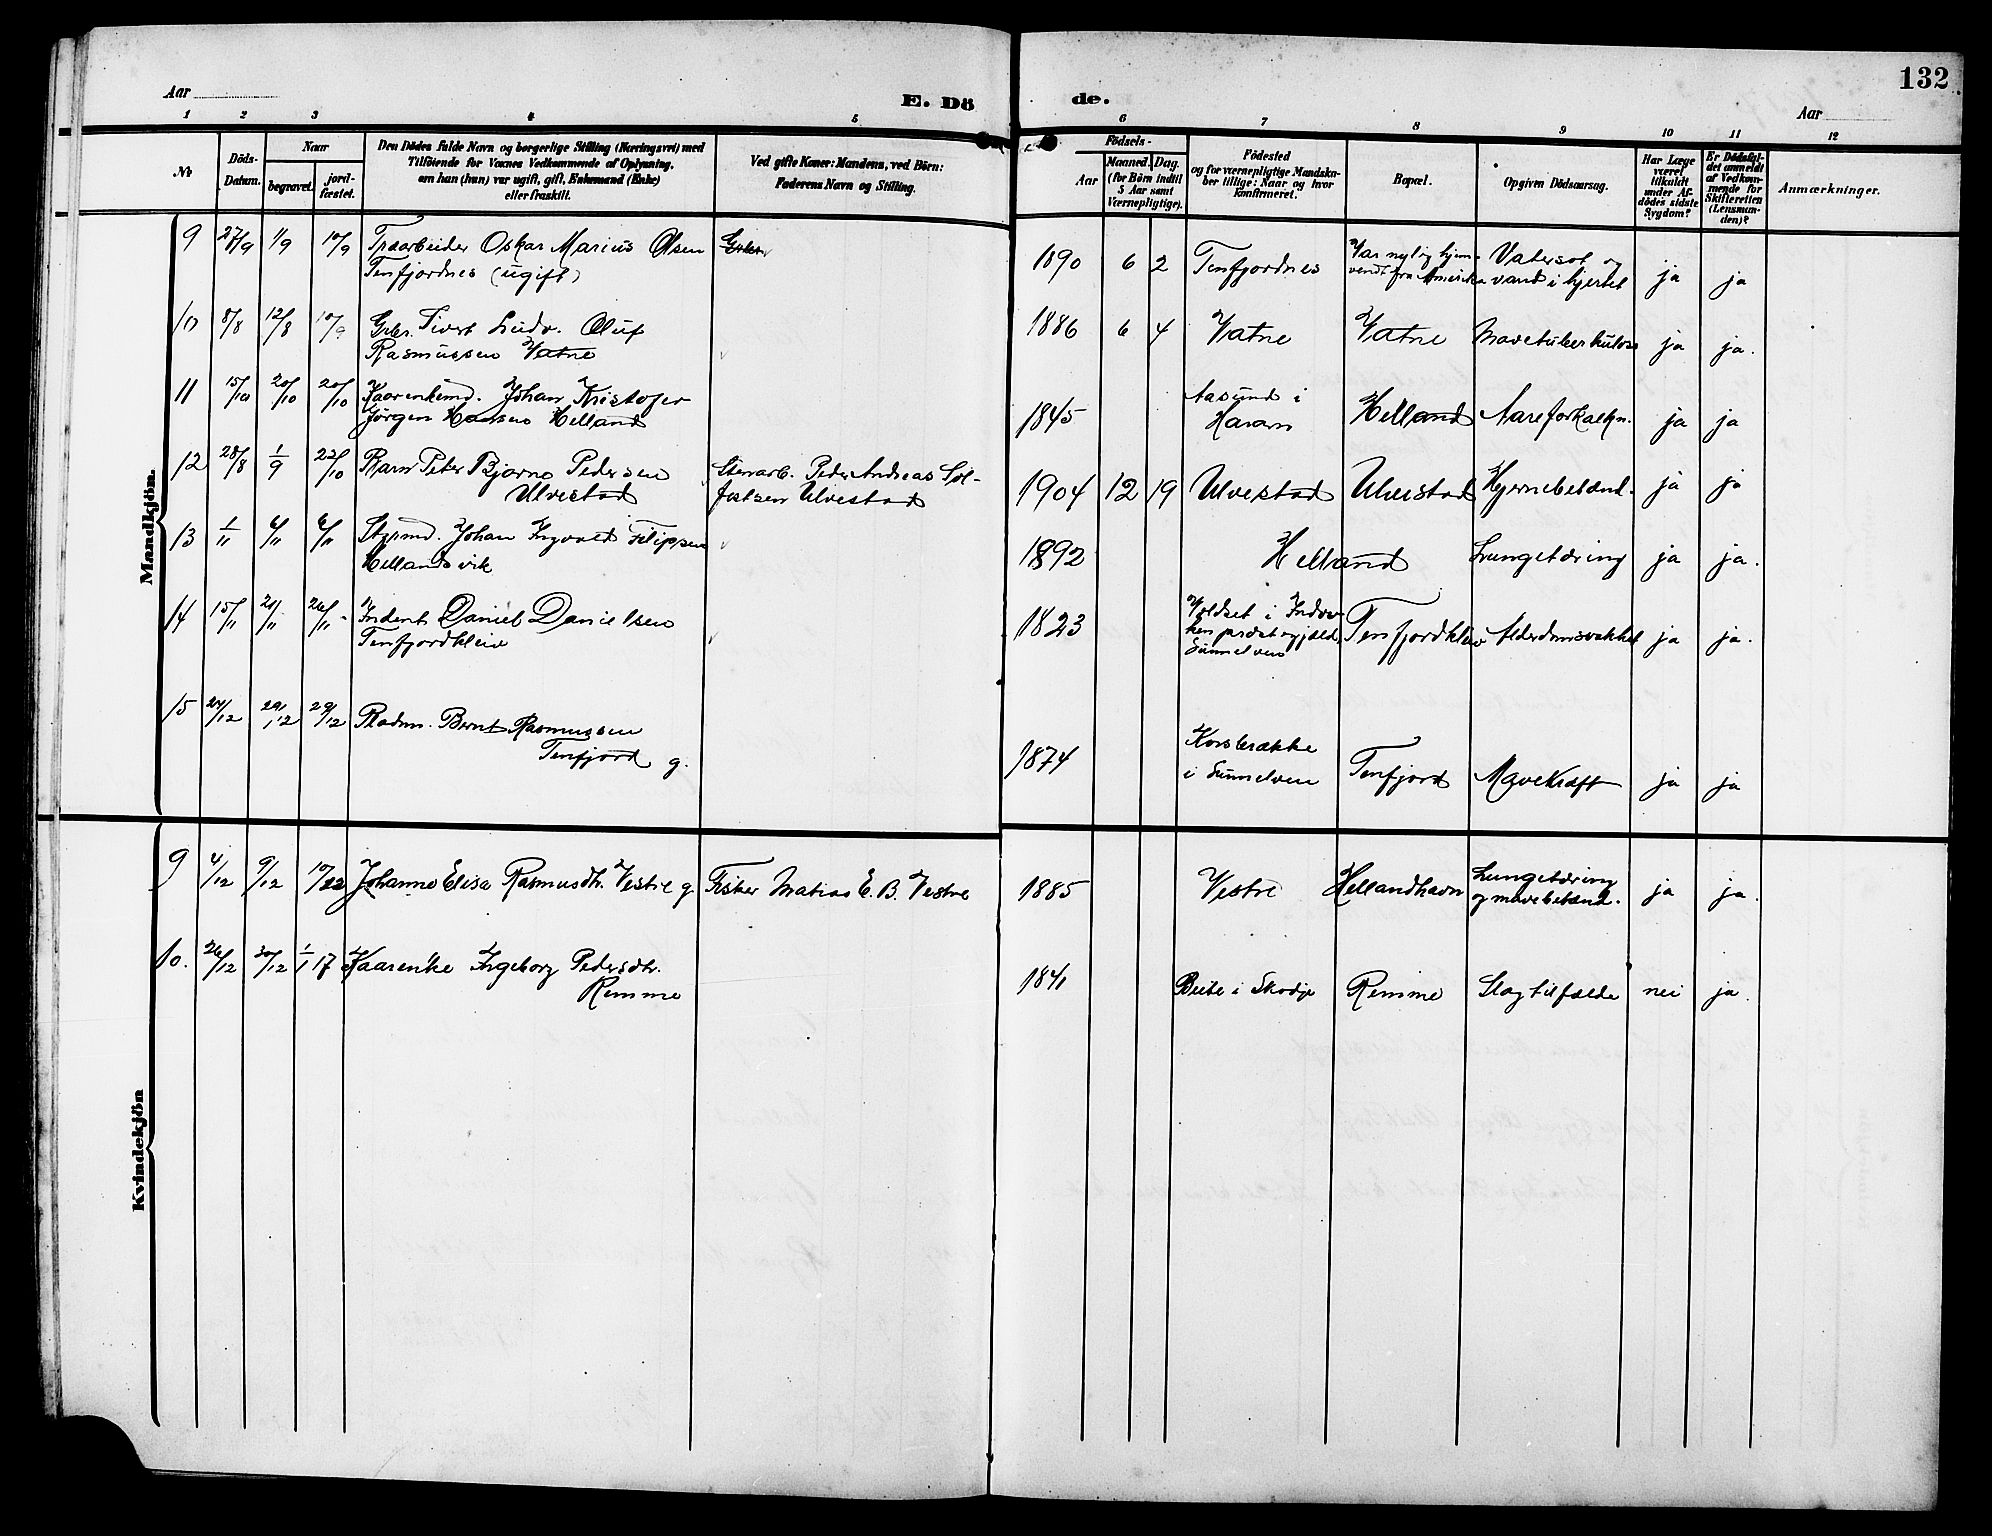 132
Aar
E. Dö
de.
Aar
1 2 3 4 5 6 7 8 9 10 11 12
No
Döds-Datum.
Naar
begravet.
jord-fæstet.
Den Dödes fulde Navn og borgerlige Stilling (Næringsvei) med
Tilföiende for Voxnes Vedkommende af Oplysning,
om han (hun) var ugift, gift, Enkemand (Enke)
eller fraskilt.
Ved gifte Koner: Mandens, ved Börn:
Faderens Navn og Stilling.
Födsels-
Aar
Maaned. Dag.
(for Börn indtil
5 Aar samt
Værnepligtige).
Födested
og for værnepligtige Mandska-
ber tillige: Naar og hvor
konfirmeret.
Bopæl.
Opgiven Dödsaarsag.
Har Læge
været
tilkaldt
under Af-
dödes sidste
Sygdom?
Er Dödsfal-
det anmeldt
af Vedkom-
mende for
Skifteretten
(Lensman-
den)?
Anmærkninger.
Mandkjön.
9 27/9 1/9 10/9 Træarbeider Oskar Marius Olsen
Tenfjordnes (ugift)
1890 6 2 Tenfjordnes Var nylig hjem-
vendt fra Amerika
Vatersot og
vand i hjertet ja ja
10 8/8 12/8 10/9 Gbr. Sivert Ludv. Oluf
Rasmussen Vatne
1886 6 4 Vatne Vatne Mavetuberkulose ja ja.
11 15/10 20/10 20/10 Kaarenkemd. Johan Kristofer
Jørgen Hansen Helland
1845 Aasund i
Haram Helland Aareforkalkn. ja ja
12 28/8 1/9 22/10 Barn Peter Bjarne Pedersen
Ulvestad
Stenarb. Peder Andreas Sol-
festsen Ulvestad
1904 12 19 Ulvestad Ulvestad Hjernebetænd. ja ja
13 1/11 6/11 6/11 Styrmd. Johan Ingvald Filipsen
Hellandsvik
1892 Helland Lungetæring ja ja.
14 15/11 21/11 26/11 Inderst Daniel Danielsen
Tenfjordkleiv
1823 Voldset i Indvi-
ken
Sunnelven Tenfjordkleiv Alderdomsvakhet ja ja.
15 24/12 29/12 29/12 Pladsm. Bernt Rasmussen
Tenfjord g.
1874 Korsbrække
i Sunnelven Tenfjord Mavekræft ja ja
Kvindekjön
9 4/12 9/12 10/12 Johanne Elisa Rasmusdtr. Vestre g Fisker Matias E. B. Vestre
1885 Vestre Hellandhavn Lungetæring
og mavebetænd. ja ja.
10. 26/12 30/12 1/1 17 Kaarenke Ingeborg Pedersdtr.
Remme
1841 Beite i Skodje Remme Slagtilfælde nei ja.